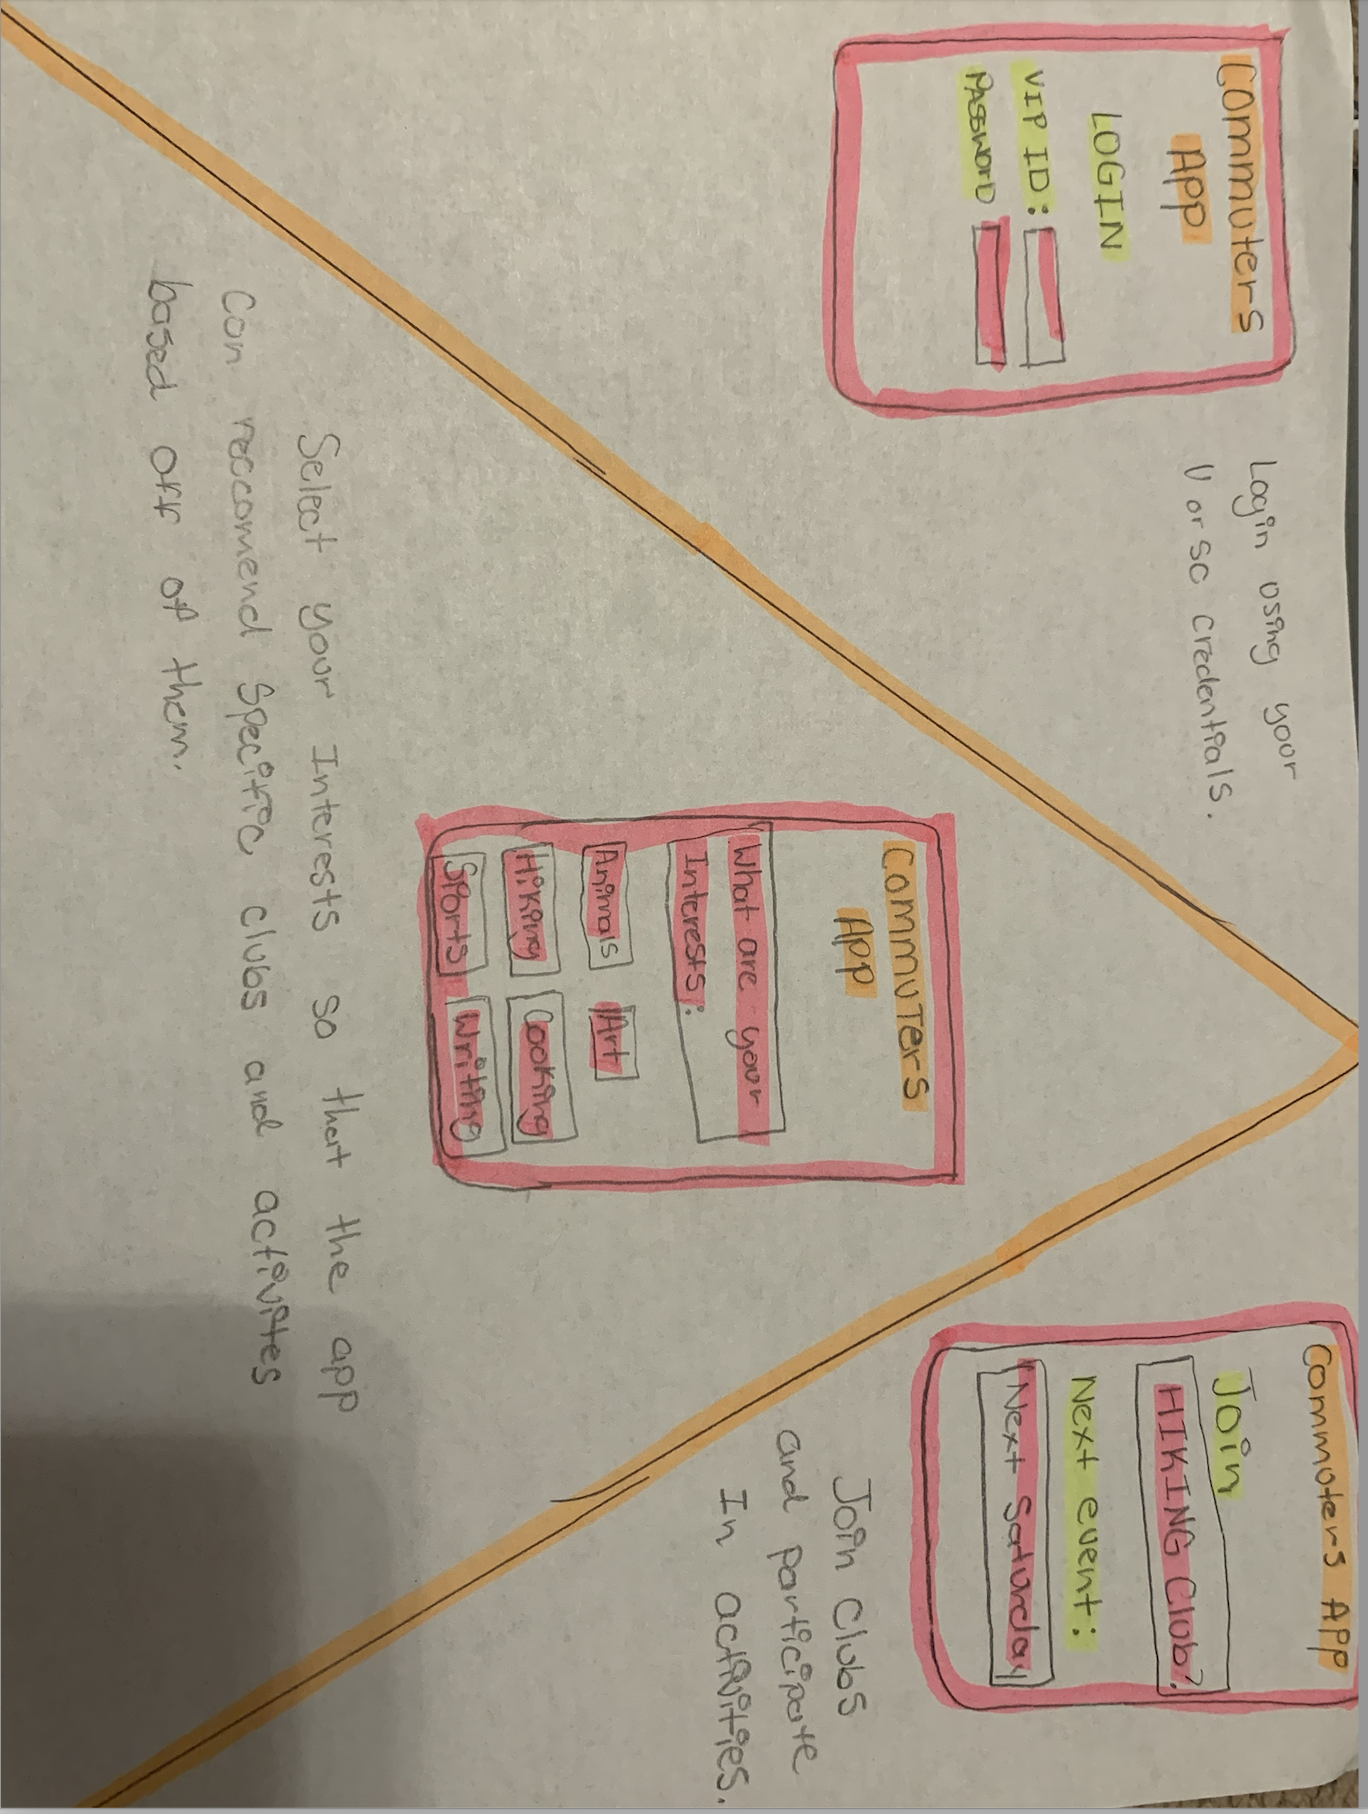 Commuters
App
LOGIN
VIP ID:
PASSWORD
Login using your
U of SC credentials.
Commuters
App
What are your
Interests:
Animals
Art
Hiking
Cooking
Sports
Writing
Select your Interests so that the app
can reccomend specific clubs and activites
based off of them.
Commuters App
Join
HIKING Club?
Next event:
Next Saturday
Join clubs
and participate
In activities.